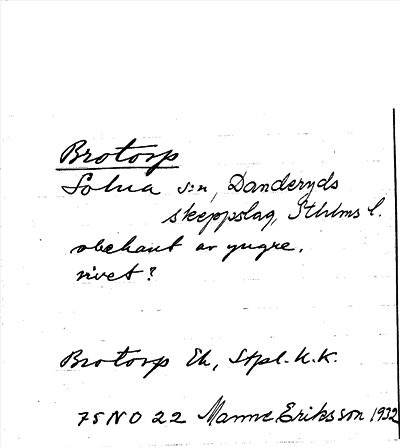 Brotorp
Solna s:n, Danderyds
skeppslag, Sthlms l.
obekant av yngre.
rivet?
Brotorp Ek, Stpl. U.K.
75 N O 22 Manne Eriksson 1932